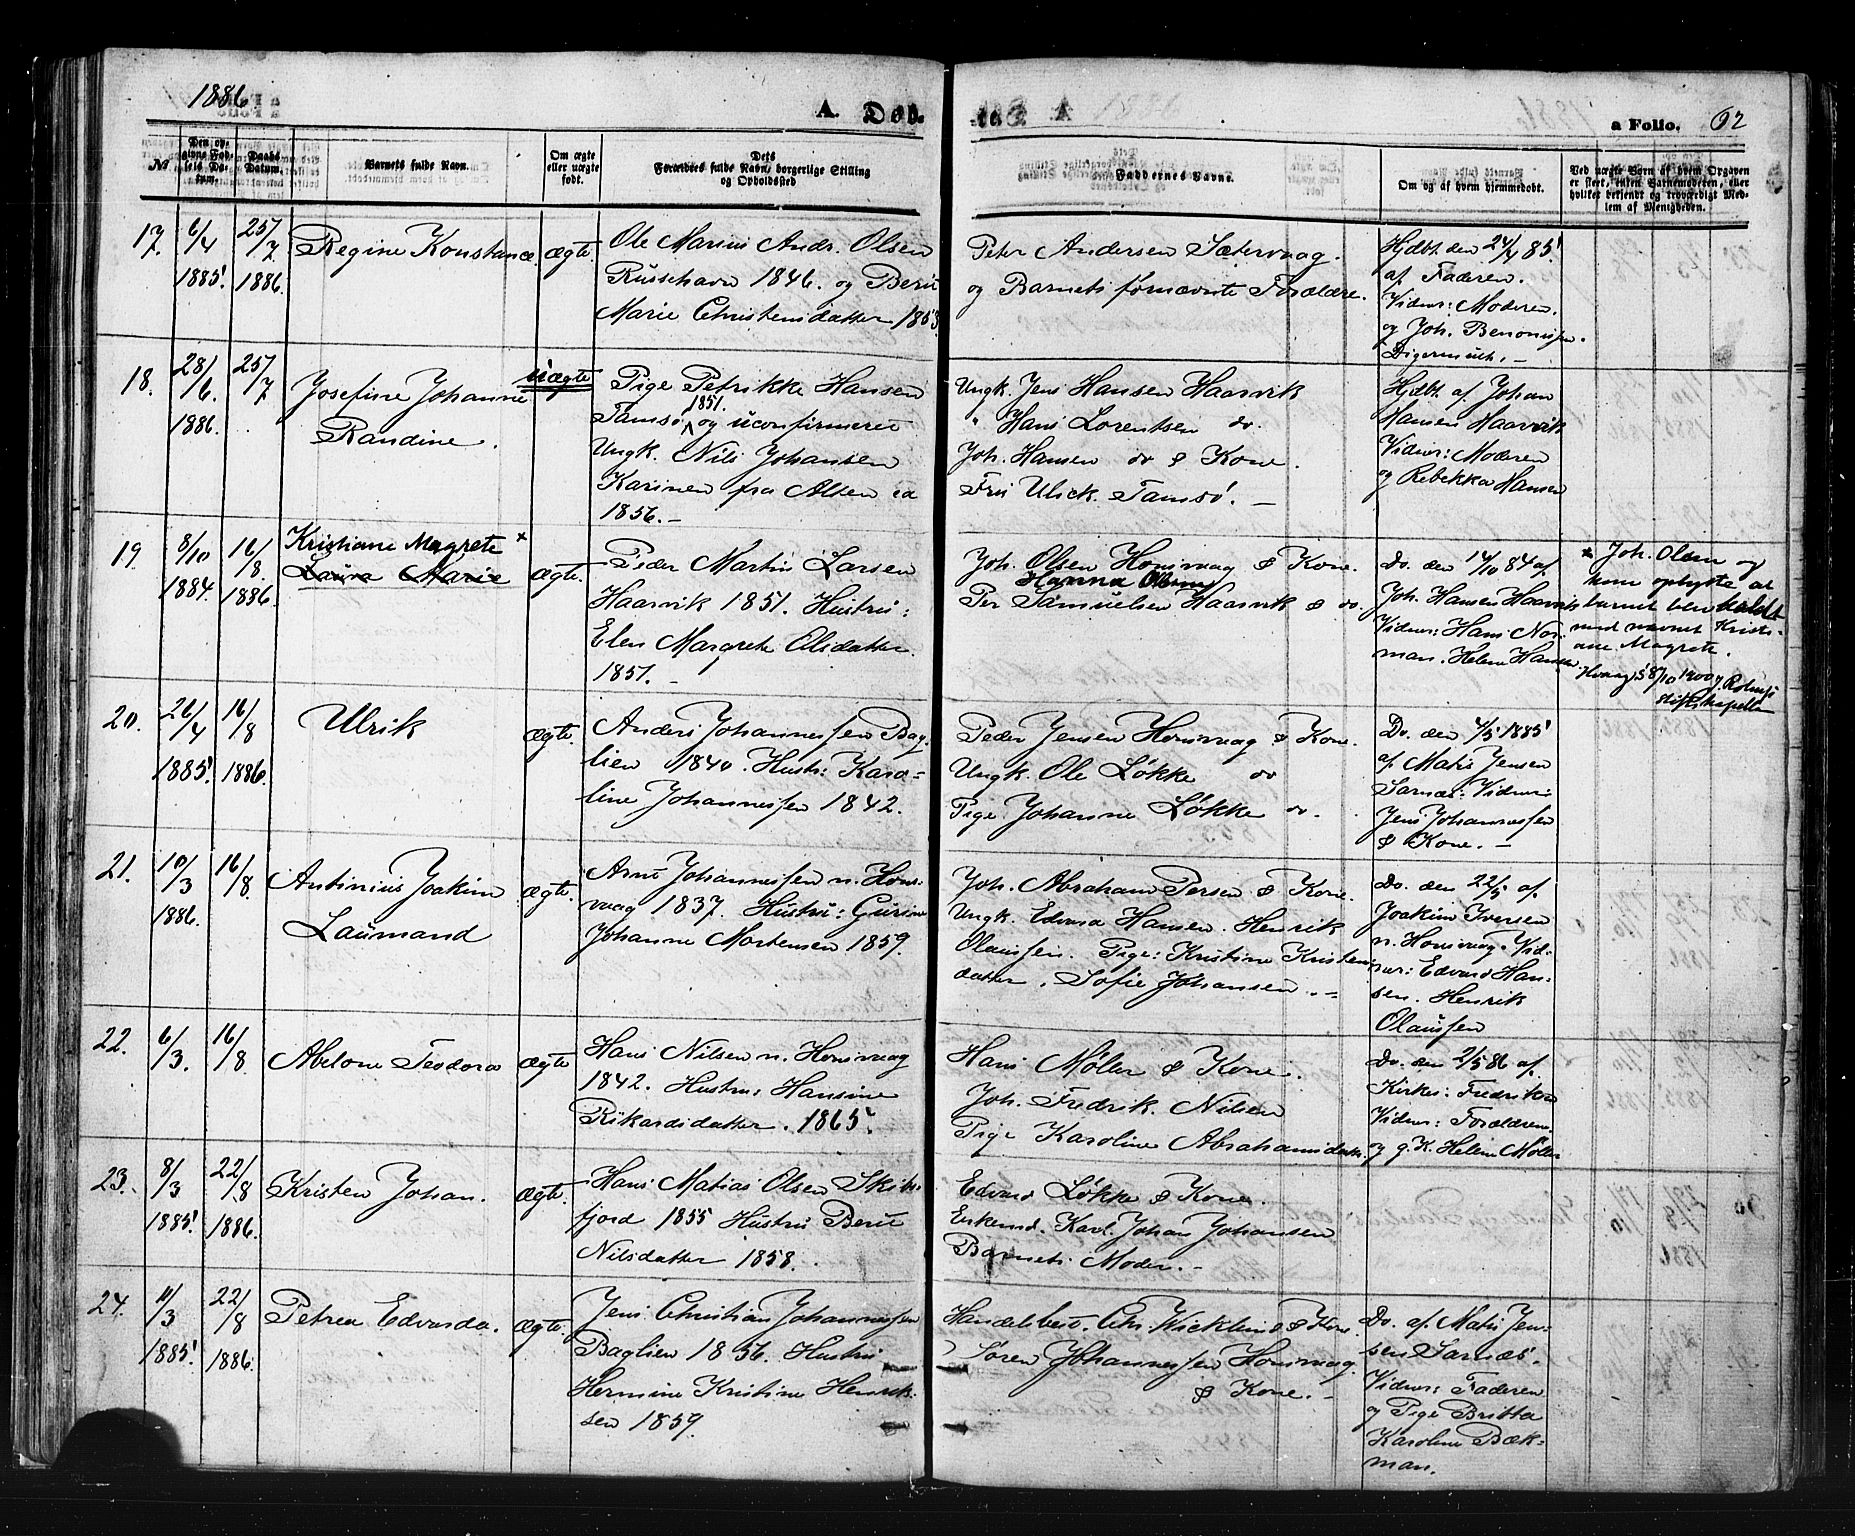 1886
A. Døb.
a Folio. 62
No
Den opgivne Fødsels Datum.
Daabs Datum.
Barnets fulde Navn.
Om ægte eller uægte født.
Dets Forældres fulde Navn, borgerlige Stilling og Opholdssted
Faddernes Navne.
Om og af hvem hjemmedøbt.
Ved uægte Børn af hvem Opgaven er skeet, enten Barnemoderen, eller hvilket bekjendt og troværdigt Medlem af Menigheden.
17. 6/4 1885 25/7 1886. Regine Konstance. ægte.
Ole Marius Andr. Olsen
Russehavn 1846. og Berit
Marie Christensdatter 1853.
Peter Andersen Sætervaag.
og Barnets førnævnte Forældre.
Hjdbt. den 24/4 85
af Faderen.
Vidner: Moderen.
og Joh. Benonissen
Digermulh. -
18. 28/6. 1886. 25/7 Josefine Johanne
Randine.
uægte
Pige Petrikke Hansen
Tamsø 1851. og uconfirmeret
Ungk. Nils Johansen
Karinen fra Alten ca
1856. -
Ungk. Jens Hansen Haarvik
" Hans Lorentsen do.
Joh. Hansen do & Kone.
Fru Ulich. Tamsø. -
Hjdbt. af Johan
Hansen Haarvik
Vidner: Moderen
og Rebekka Hansen
19. 8/10 1884. 16/8. 1886. Kristiane Magrete +
Laura Marie
ægte.
Peder Martin Larsen
Haarvik 1851. Hustru:
Elen Margrete Olsdatter.
1851. -
Joh. Olsen Honsvaag & Kone.
Hanna Olsen
Per Samuelsen Haarvik & do.
Do. den 14/10 84 af
Joh. Hansen Haarvik
Vidner: Hans Nor-
man. Helene Hansen.
+ Joh. Olsen og
kone oplyste at
barnet blev kaldt
med navnet Kristi-
ane Magrete.
20. 26/4 1885. 16/8 1886. Ulrik ægte.
Anders Johannessen Bag-
lien 1840. Hustr: Karo-
line Johannessen 1842.
Peder Jensen Honsvaag & Kone.
Ungk. Ole Løkke do
Pige Johanne Løkke do.
Do. den 4/5 1885
af Mats Jensen
Sarnæs: Vidner:
Jens Johannessen
& Kone. -
21. 19/3 1886. 16/8. Antinius Joakim
Laumand
ægte.
Arnt Johannessen n. Hons-
vaag 1837. Hustru: Gurine
Johanne Mortensen 1859.
Joh. Abraham Persen & Kone.
Ungk. Edvard Hansen. Henrik
Olaussen. Pige: Kristine Kristens
datter. Sofie Johansen. -
Do. den 22/5 af.
Joakim Iversen
n. Honsvaag. Vid-
ner: Edvard Han-
sen. Henrik
Olaussen
22. 6/3. 16/8 Abelone Teodora ægte
Hans Nilsen n. Honsvaag
1842. Hustru: Hansine
Rikardsdatter. 1865.
Hans Møller & Kone.
Joh. Fredrik. Nilsen
Pige Karoline Abrahamsdatter.
Do. den 2/5 86 af.
Kirkes: Fredriksen
Vidner: Forældrene.
og g. K. Helene Møller
23. 8/3 1885. 22/8 1886. Kristen Johan. ægte.
Hans Matias Olsen Skibs-
fjord 1855 Hustru Berit
Nilsdatter 1858.
Edvard Løkke & Kone.
Enkemd. Karl. Johan Johansen
Barnets Moder. -
24. 11/3 1885. 22/8 1886. Petrea Edvarda. ægte.
Jens Christian Johannessen
Baglien 1856. Hustru
Hermine Kristine Henrik-
sen 1859.
Handelsbest. Chr. Wicklund & Kone.
Søren Johannessen Honsvaag
& Kone. -
Do. af Mats Jen-
sen Sarnæs.
Vidner: Faderen
og Pige Britta
Karoline Bæk-
man.